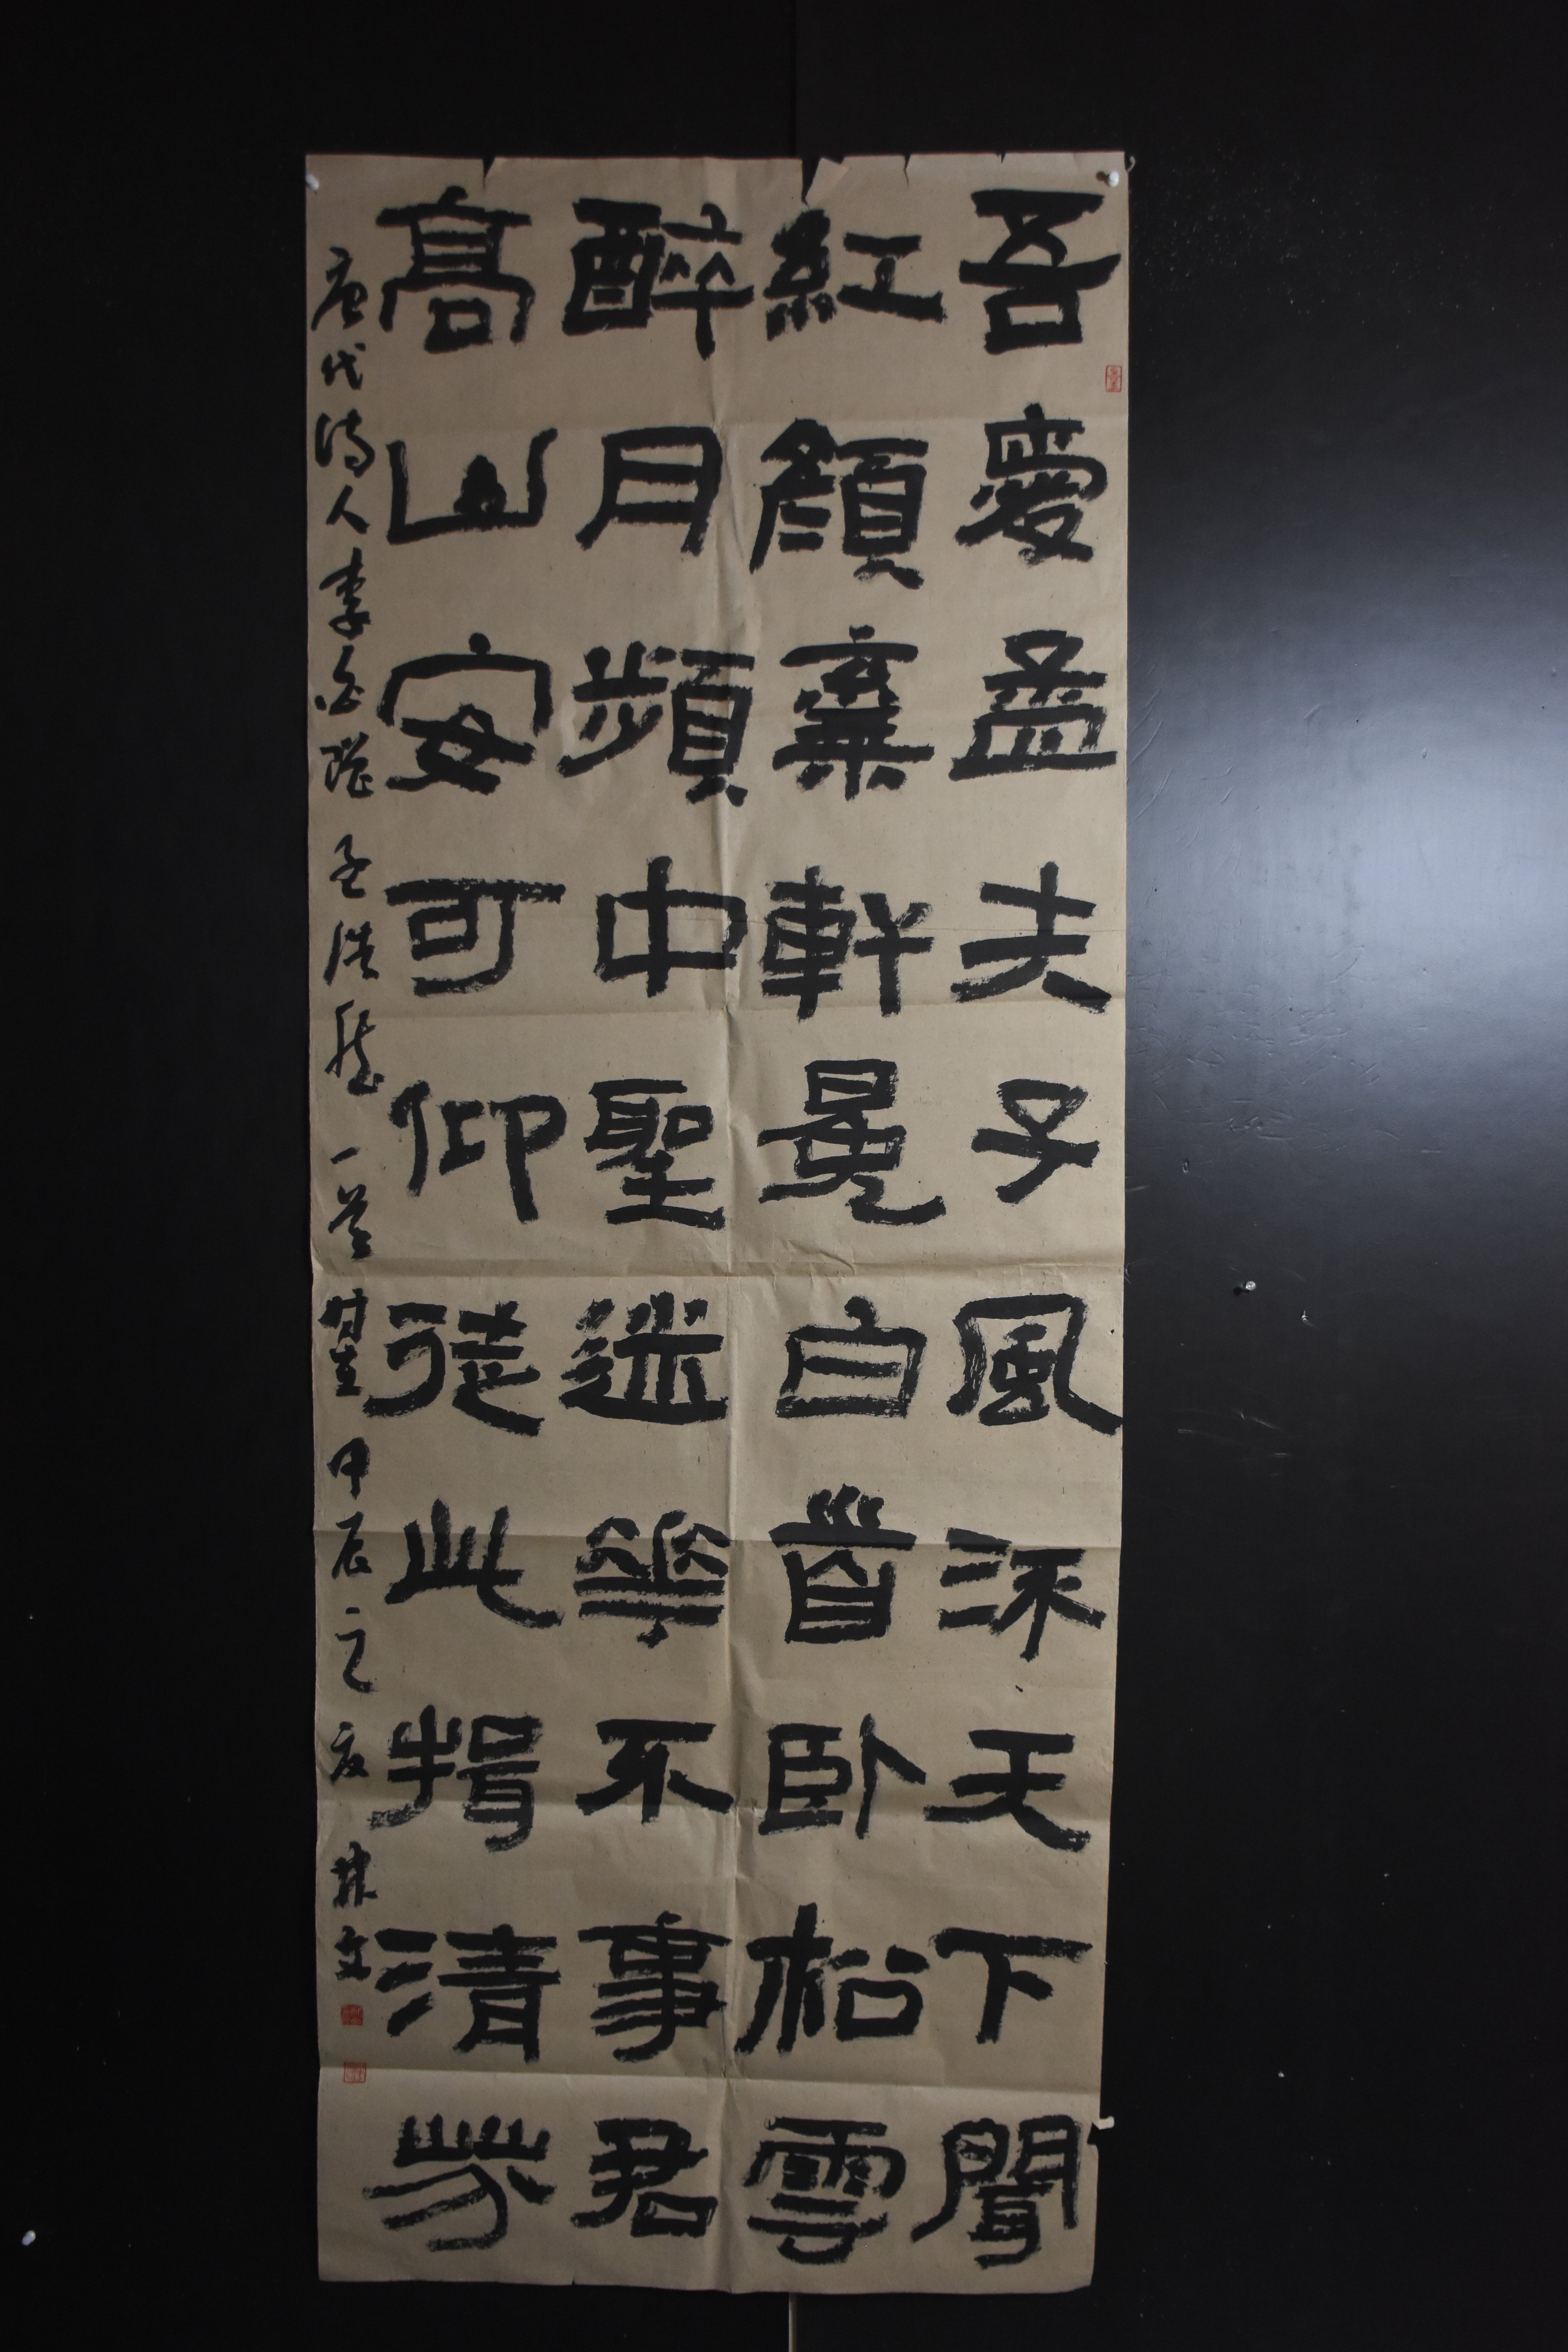 吾愛孟夫子風流天下聞
紅顏棄軒冕白首臥松雲
醉月頻中聖迷花不事君
高山安可仰徒此揖清芬
唐代诗人李白贈孟浩然一首 甲辰之夏 林文